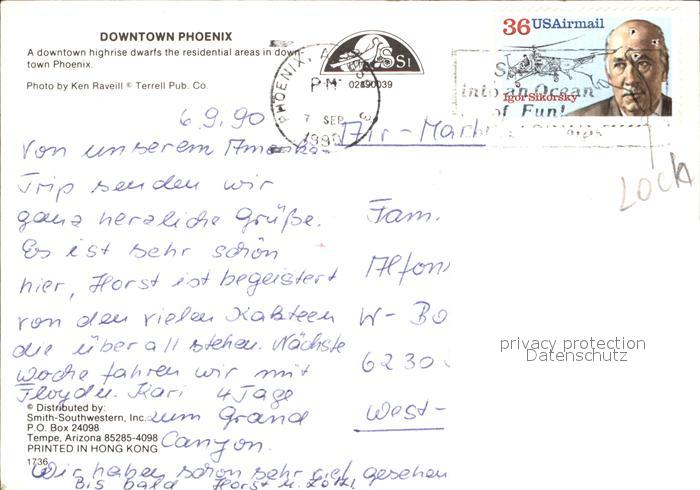 DOWNTOWN PHOENIX
A downtown highrise dwarfs the residential areas in down-
town Phoenix.
Photo by Ken Raveill © Terrell Pub. Co.
SSI
02890039
PHOENIX, A
PM
7 SEP
1990
36 USAirmail
Igor Sikorsky
into an Ocean
of Fun!
LOCH
6.9.90
Von unserem Amerika-
Trip senden wir
ganz herzliche Grüße.
Es ist sehr schön
hier, Horst ist begeistert
von den vielen Kakteen
die überall stehen. Nächste
Woche fahren wir mit
Floyd u. Kari 4 Tage
zum Grand
Canyon.
Wir haben schon sehr viel gesehen
Bis bald Horst u.
Air-Mail
Fam.
Alfons
W- Bo
6230
West-
privacy protection
Datenschutz
© Distributed by:
Smith-Southwestern, Inc.
P.O. Box 24098
Tempe, Arizona 85285-4098
PRINTED IN HONG KONG
1736